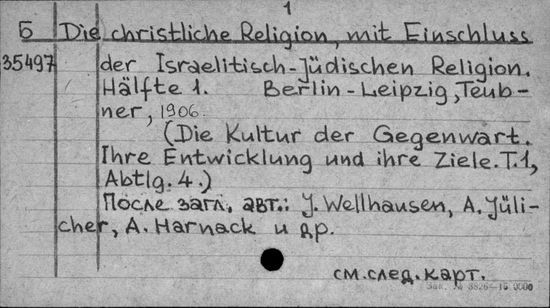 1
Б Die christliche Religion, mit Einschluss
35497 der Israelitisch-Jüdischen Religion.
Hälfte 1. Berlin-Leipzig, Teub-
ner, 1906.
(Die Kultur der Gegenwart.
Ihre Entwicklung und ihre Ziele. T.1,
Abtlg. 4.)
После загл. авт.: J. Wellhausen, A. Jüli-
cher, A. Harnack и др.
см.след.карт.